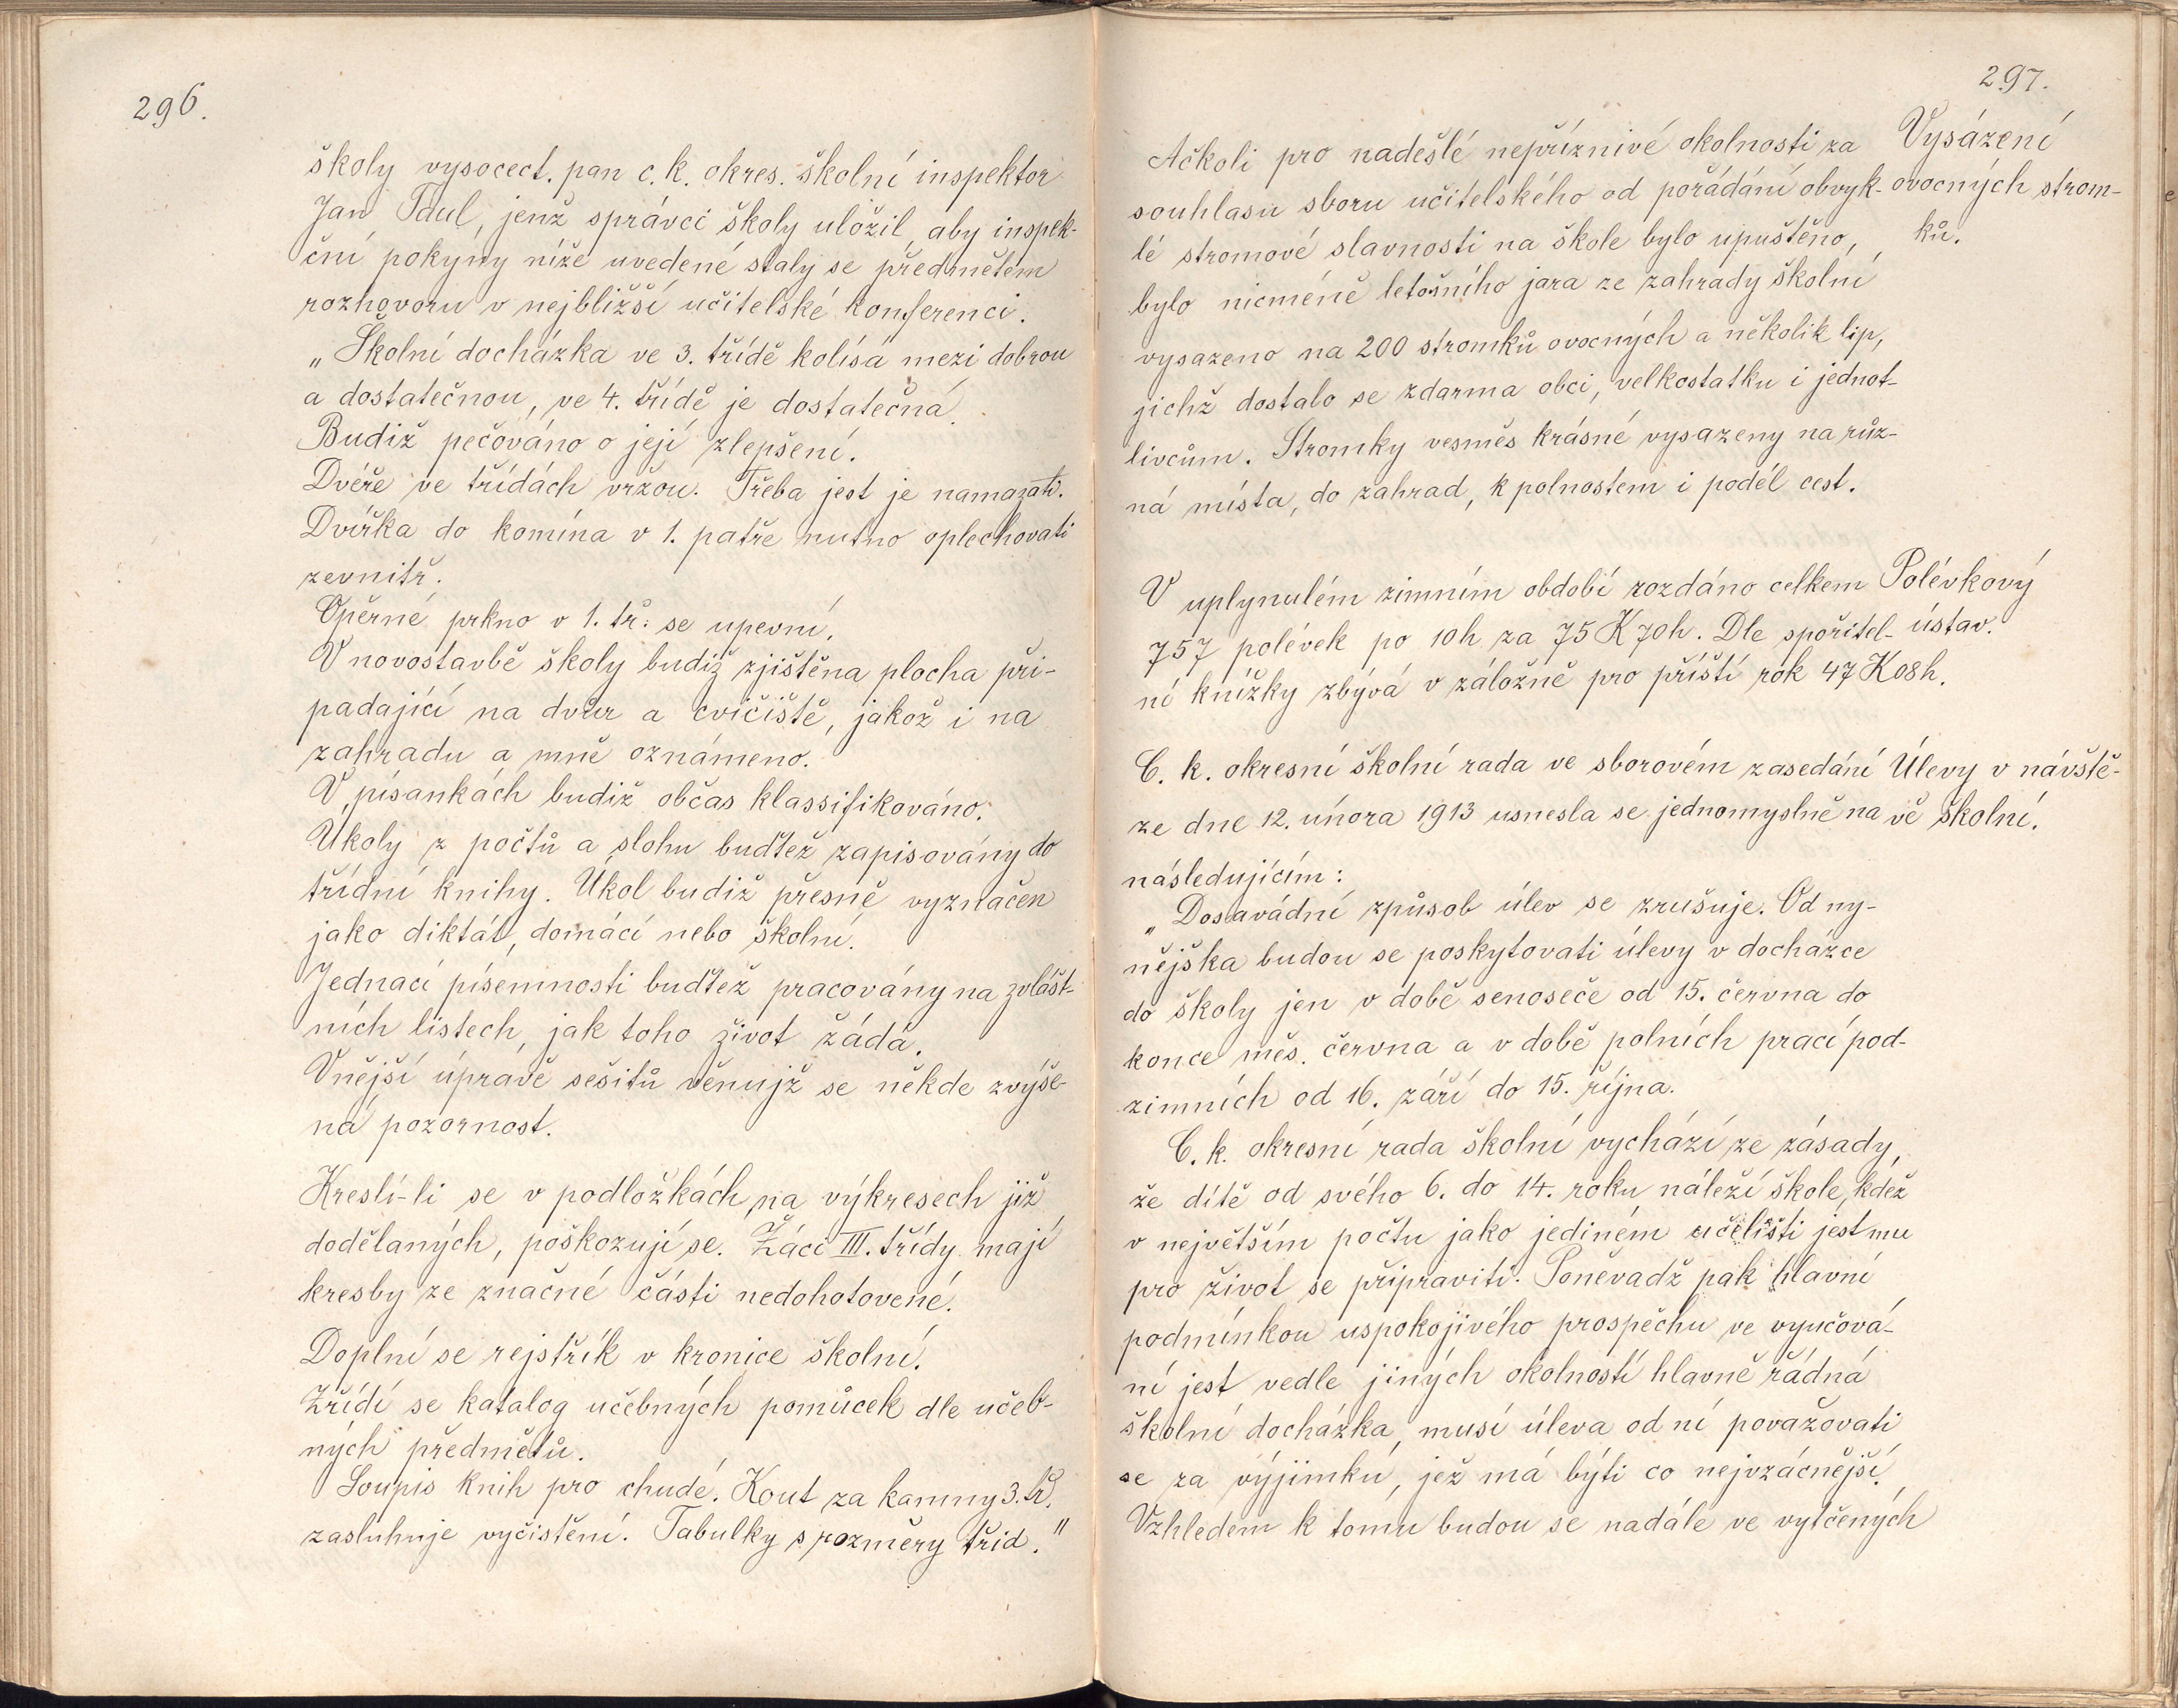 296.
školy vysocect. pan c. k. okres. školní inspektor
Jan Taul, jenž správci školy uložil, aby inspek-
ční pokyny níže uvedené staly se předmětem
rozhovoru v nejbližší učitelské konferenci.
„Školní docházka ve 3. třídě kolísá mezi dobrou
a dostatečnou, ve 4. třídě je dostatečná.
Budiž pečováno o její zlepšení.
Dvéře ve třídách vržou. Třeba jest je namazati.
Dvířka do komína v 1. patře nutno oplechovati
zevnitř.
Opěrné prkno v 1. tř. se upevní.
V novostavbě školy budiž zjištěna plocha při-
padající na dvůr a cvičiště, jakož i na
zahradu a mně oznámeno.
V písankách budiž občas klassifikováno.
Úkoly z počtů a slohu buďtež zapisovány do
třídní knihy. Úkol budiž přesně vyznačen
jako diktát, domácí nebo školní.
Jednací písemnosti buďtež pracovány na zvlášt-
ních listech, jak toho život žádá.
Vnější úpravě sešitů věnujž se někde zvýše-
ná pozornost.
Kreslí-li se v podložkách na výkresech již
dodělaných, poškozují se. Žáci III. třídy mají
kresby ze značné části nedohotovené.
Doplní se rejstřík v kronice školní.
Zřídí se katalog učebných pomůcek dle učeb-
ných předmětů.
Soupis knih pro chudé. Kout za kamny 3. tř.
zasluhuje vyčistění. Tabulky s rozměry tříd."
297.
Ačkoli pro nadešlé nepříznivé okolnosti za
souhlasu sboru učitelského od pořádání obvyk-
lé stromové slavnosti na škole bylo upuštěno,
bylo nicméně letošního jara ze zahrady školní
vysazeno na 200 stromků ovocných a několik lip,
jichž dostalo se zdarma obci, velkostatku i jednot-
livcům. Stromky vesměs krásné vysazeny na růz-
ná místa, do zahrad, k polnostem i podél cest.
Vysázení
ovocných strom-
ků.
V uplynulém zimním období rozdáno celkem
757 polévek po 10h za 75 K 70h. Dle spořitel-
ní knížky zbývá v záložně pro příští rok 47 K 08h.
Polévkový
ústav.
C. k. okresní školní rada ve sborovém zasedání
ze dne 12. února 1913 usnesla se jednomyslně na
následujícím:
Úlevy v návště-
vě školní.
„Dosavádní způsob úlev se zrušuje. Od ny-
nějška budou se poskytovati úlevy v docházce
do školy jen v době senoseče od 15. června do
konce měs. června a v době polních prací pod-
zimních od 16. září do 15. října.
C. k. okresní rada školní vychází ze zásady,
že dítě od svého 6. do 14. roku náleží škole, kdež
v největším počtu jako jediném učelišti jest mu
pro život se připraviti. Poněvadž pak hlavní
podmínkou uspokojivého prospěchu ve vyučová-
ní jest vedle jiných okolností hlavně řádná
školní docházka, musí úleva od ní považovati
se za výjimku, jež má býti co nejvzácnější.
Vzhledem k tomu budou se nadále ve vytčených